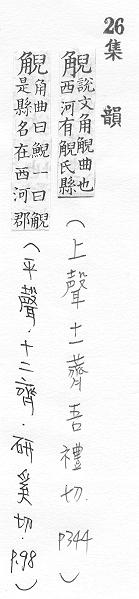 26
集 韻
觬 說文角觬曲也
西河有觬氏縣
(上聲.十一薺.吾禮切.P344)
觬 角曲曰觬一曰觬
是縣名在西河郡
(平聲.十二齊.研奚切.P.98)